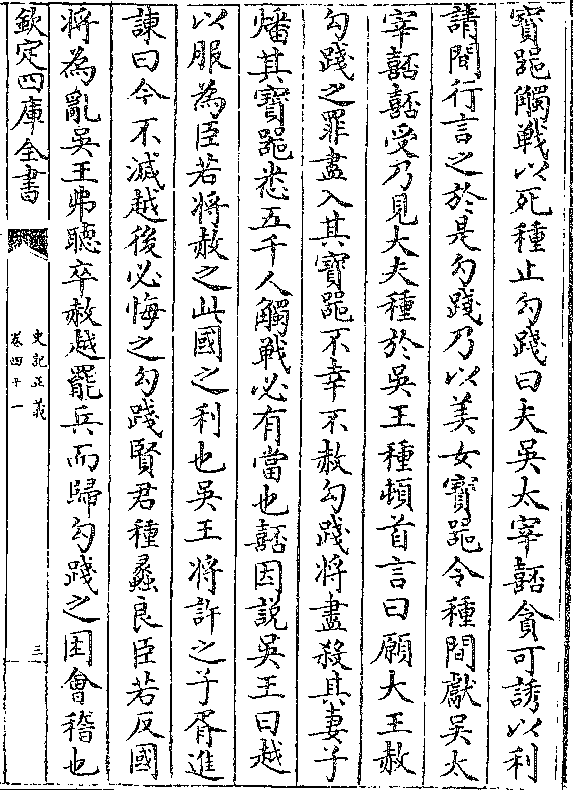 寳噐觸戰以死種止勾踐曰夫吳太宰嚭貪可誘以利
請間行言之於是勾踐乃以美女寳噐令種間獻吳太
宰嚭嚭受乃見大夫種於吳王種頓首言曰願大王赦
勾踐之罪盡入其寳噐不幸不赦勾踐將盡殺其妻子
燔其寳噐悉五千人觸戰必有當也嚭因說吳王曰越
以服為臣若將赦之此國之利也吳王將許之子胥進
諫曰今不滅越後必悔之勾踐賢君種蠡良臣若反國
將為亂吳王弗聽卒赦越罷兵而歸勾踐之困會稽也
欽定四庫全書
史記正義
卷四十一
三